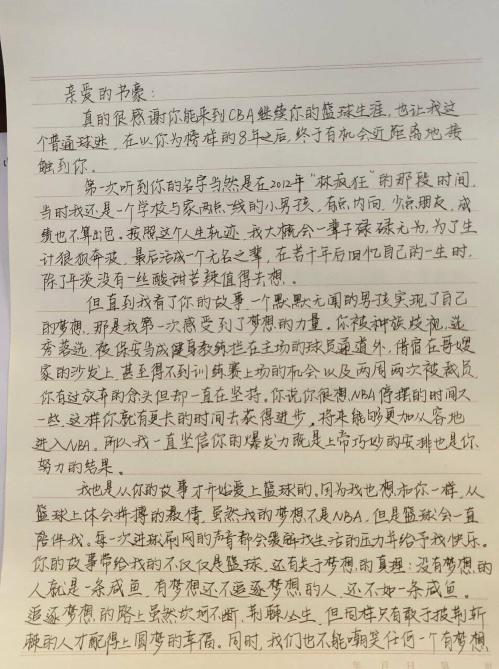 亲爱的书豪：
真的很感谢你能来到CBA继续你的篮球生涯，也让我这
个普通球迷，在以你为榜样的8年之后，终于有机会近距离地接
触到你。
第一次听到你的名字当然是在2012年“林疯狂”的那段时间，
当时我还是一个学校与家两点一线的小男孩，有点内向，少点朋友，成
绩也不算出色。按照这个人生轨迹，我大概会一辈子碌碌无为，为了生
计狼狈奔波，最后活成一个无名之辈，在若干年后回忆自己的一生时，
除了平淡没有一丝酸甜苦辣值得去想。
但直到我看了你的故事，一个默默无闻的男孩实现了自己
的梦想，那是我第一次感受到了梦想的力量。你被种族歧视，选
秀落选，被保安当成健身教练拦在主场的球员通道外，借宿在哥嫂
家的沙发上，甚至得不到训练赛上场的机会以及两周两次被裁员，
你有过放弃的念头但却一直在坚持。你说你很想NBA停摆的时间久
一些，这样你就有更长的时间去获得进步，将来能够更加从容地
进入NBA。所以我一直坚信你的爆发力既是上帝巧妙的安排也是你
努力的结果。
我也是从你的故事才开始爱上篮球的，因为我也想和你一样，从
篮球上体会拼搏的激情，虽然我的梦想不是NBA，但是篮球会一直
陪伴我。每一次进球刷网的声音都会缓解我生活的压力并给予我快乐。
你的故事带给我的不仅仅是篮球，还有关于梦想的真理：没有梦想的
人就是一条咸鱼，有梦想还不追逐梦想的人，还不如一条咸鱼。
追逐梦想的路上虽然坎坷不断，荆棘丛生，但同样只有敢于披荆斩
棘的人才配得上圆梦的幸福。同时，我们也不能嘲笑任何一个有梦想
年 月 日 第